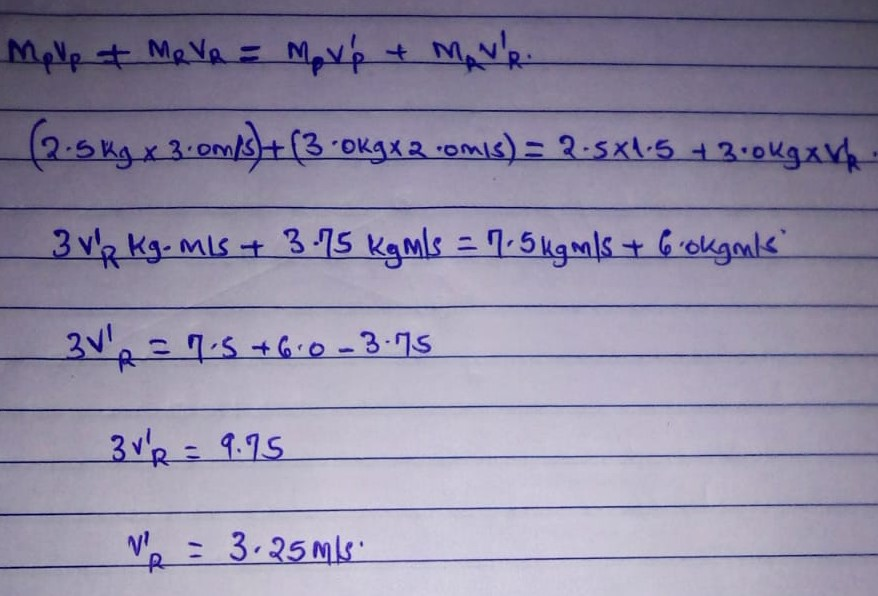 MpVp + MRVR = MpV'p + MRV'R.
(2.5kg x 3.0m/s)+(3.0kgx2.0m/s) = 2.5x1.5 + 3.0kgxV'R.
3V'R kg-m/s + 3.75 kgm/s = 7.5kgm/s + 6.0kgm/s
3V'R = 7.5 +6.0 - 3.75
3V'R = 9.75
V'R = 3.25m/s.